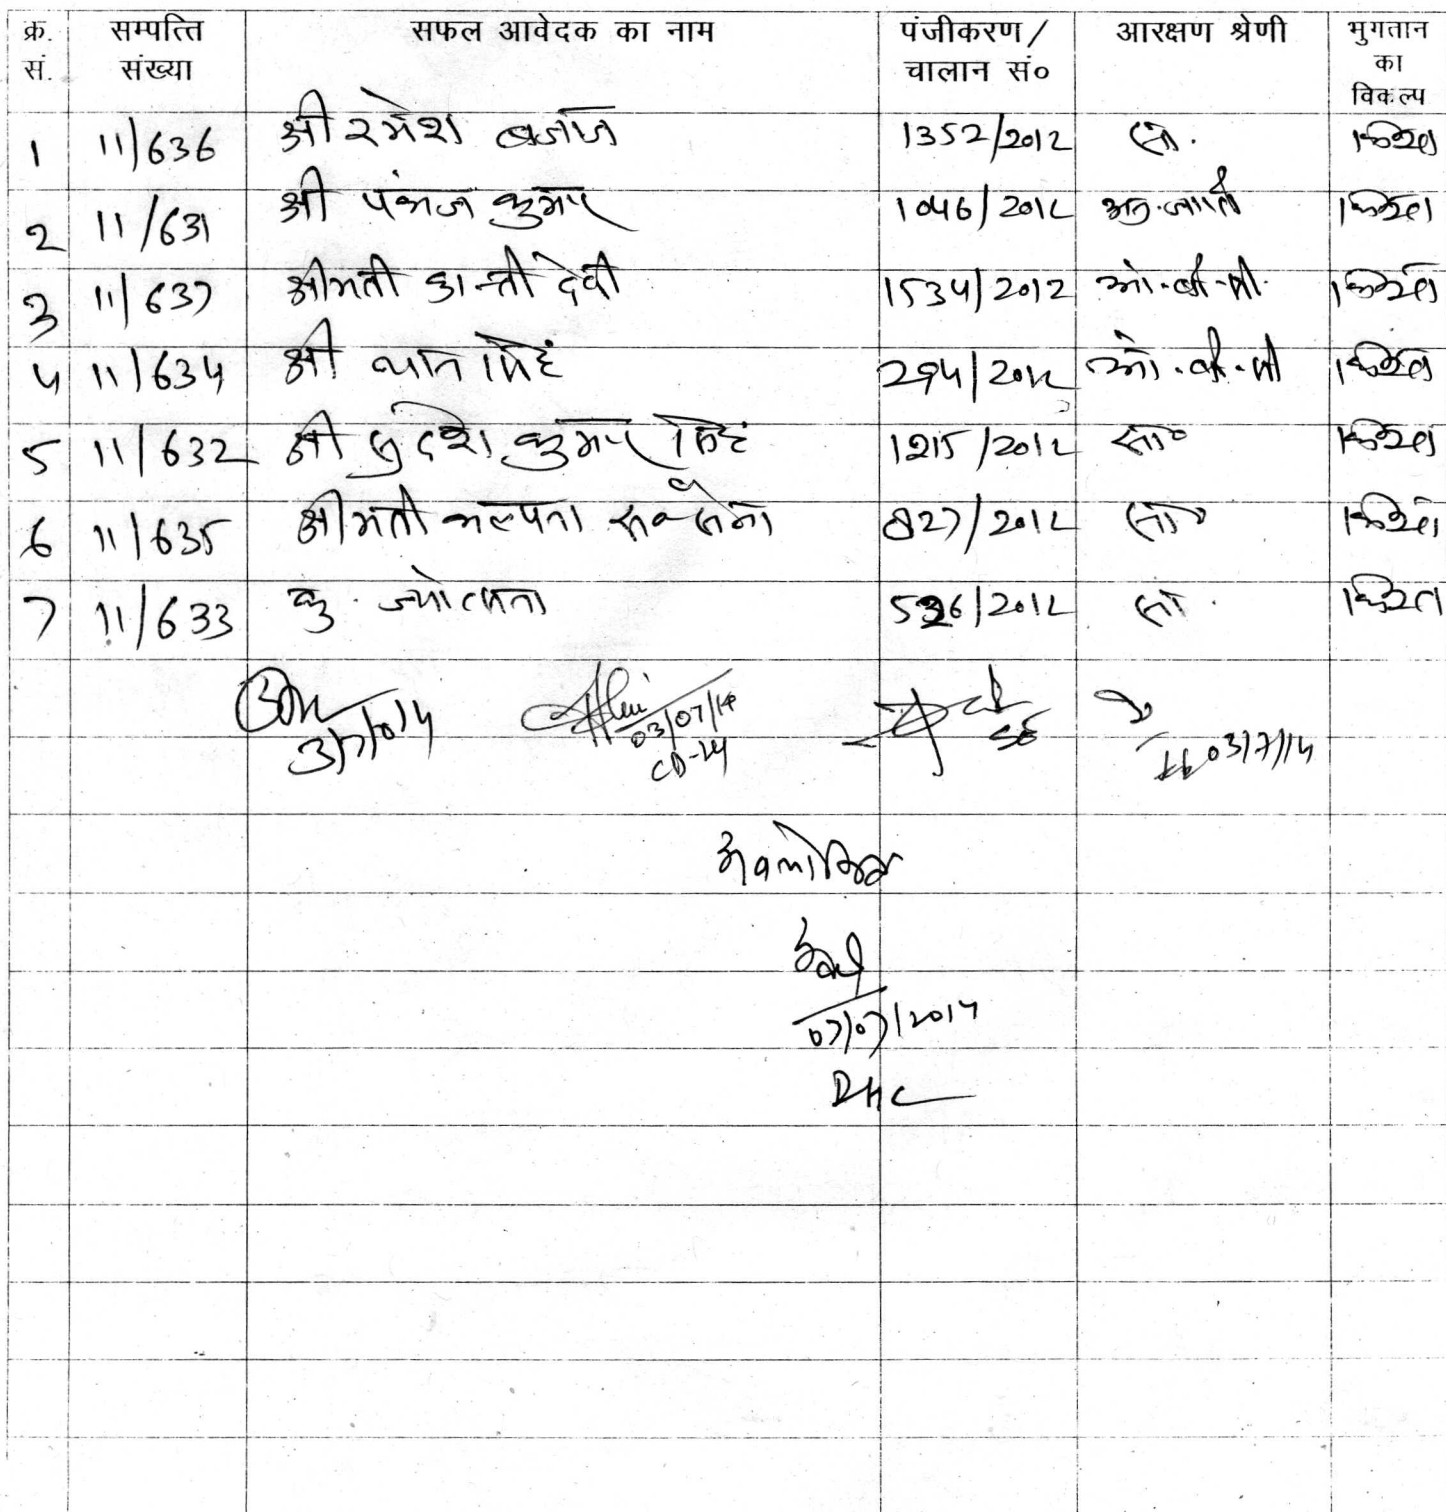 क्र. सं. सम्पत्ति संख्या सफल आवेदक का नाम पंजीकरण/ चालान सं० आरक्षण श्रेणी भुगतान का विकल्प
1 11/636 श्री रमेश बजाज 1352/2012 सा. किश्त
2 11/631 श्री पंकज कुमार 1046/2012 अनु.जाति किश्त
3 11/637 श्रीमती कान्ती देवी 1534/2012 ओ.बी.सी. किश्त
4 11/634 श्री थान सिंह 294/2012 ओ.बी.सी किश्त
5 11/632 श्री सुदेश कुमार सिंह 1215/2012 सा० किश्त
6 11/635 श्रीमती कल्पना सक्सेना 827/2012 सा० किश्त
7 11/633 कु. ज्योत्सना 526/2012 सा. किश्त
3/7/014 03/07/14 SE 03/7/14
CD-24
अवलोकित
07/07/2014
DHC